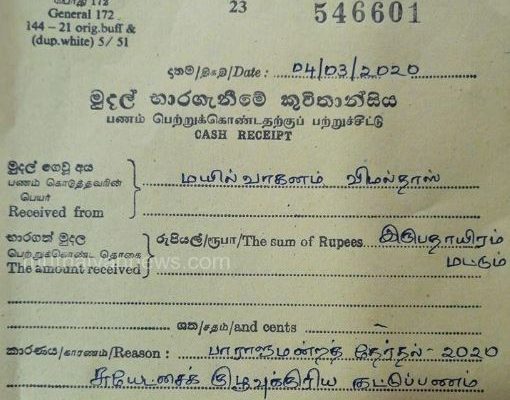 General 172
144 – 21 orig.buff &
(dup.white) 5/ 51
23
546601
දිනය/திகதி/Date : 04/03/2020
මුදල් භාරගැනීමේ කුවිතාන්සිය
பணம் பெற்றுக்கொண்டதற்குப் பற்றுச்சீட்டு
CASH RECEIPT
මුදල් ගෙවූ අය
பணம் கொடுத்தவரின்
பெயர்
Received from
மயில்வாகனம் விமல்தாஸ்
භාරගත් මුදල
பெற்றுக்கொண்ட தொகை
The amount received
රුපියල්/ரூபா/The sum of Rupees இருபதாயிரம்
மட்டும்
ශත/சதம்/and cents –
කාරණය/காரணம்/Reason : பாராளுமன்றத் தேர்தல் - 2020
சுயேட்சைக் குழுவுக்குரிய கட்டுப்பணம்